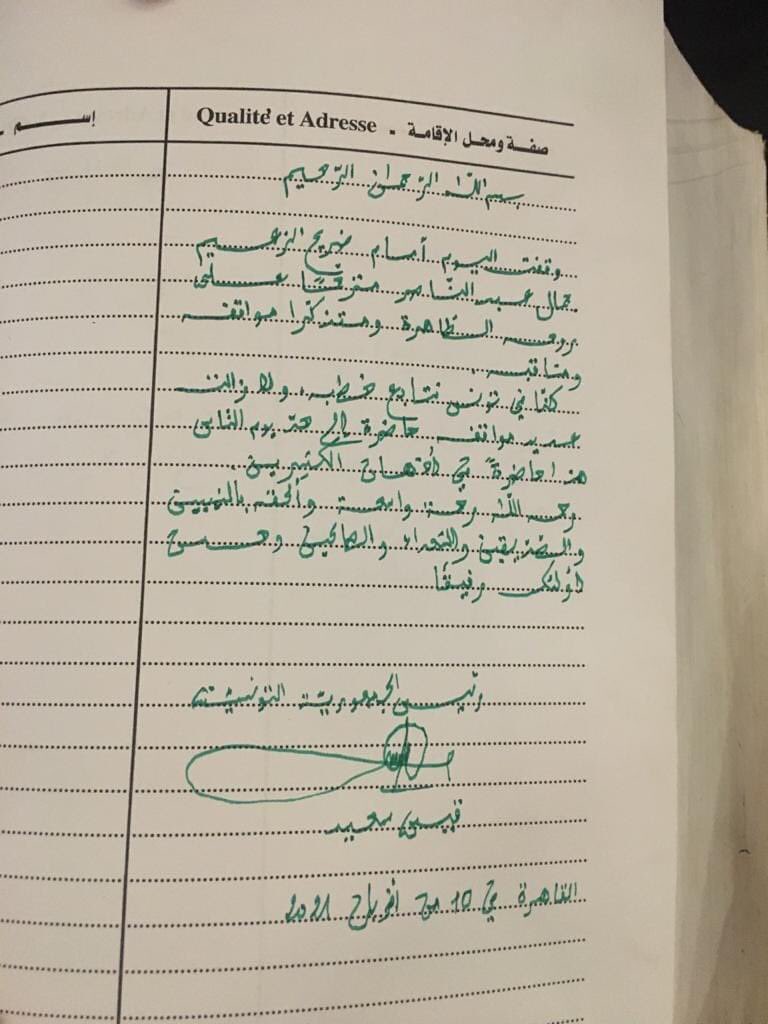 إسم -
Qualité et Adresse - صفة ومحل الإقامة
بسم الله الرّحمان الرّحيم
وقفت اليوم أمام ضريح الزعيم
جمال عبد النّاصر مترحّمًا على
روحه الطّاهرة ومتذكّرا مواقفه
ومناقبه.
كنّا في تونس نتابع خطبه، ولا زالت
عديد مواقفه حاضرة إلى حدّ يوم النّاس
هذا حاضرةً في أذهان الكثيرين.
رحمه اللّه رحمة واسعة وألحقه بالنبيين
والصّدّيقين والشهداء والصالحين وحسن
أولئك رفيقًا
رئيس الجمهوريّة التونسيّة
قيس سعيد
القاهرة في 10 من أفريل 2021